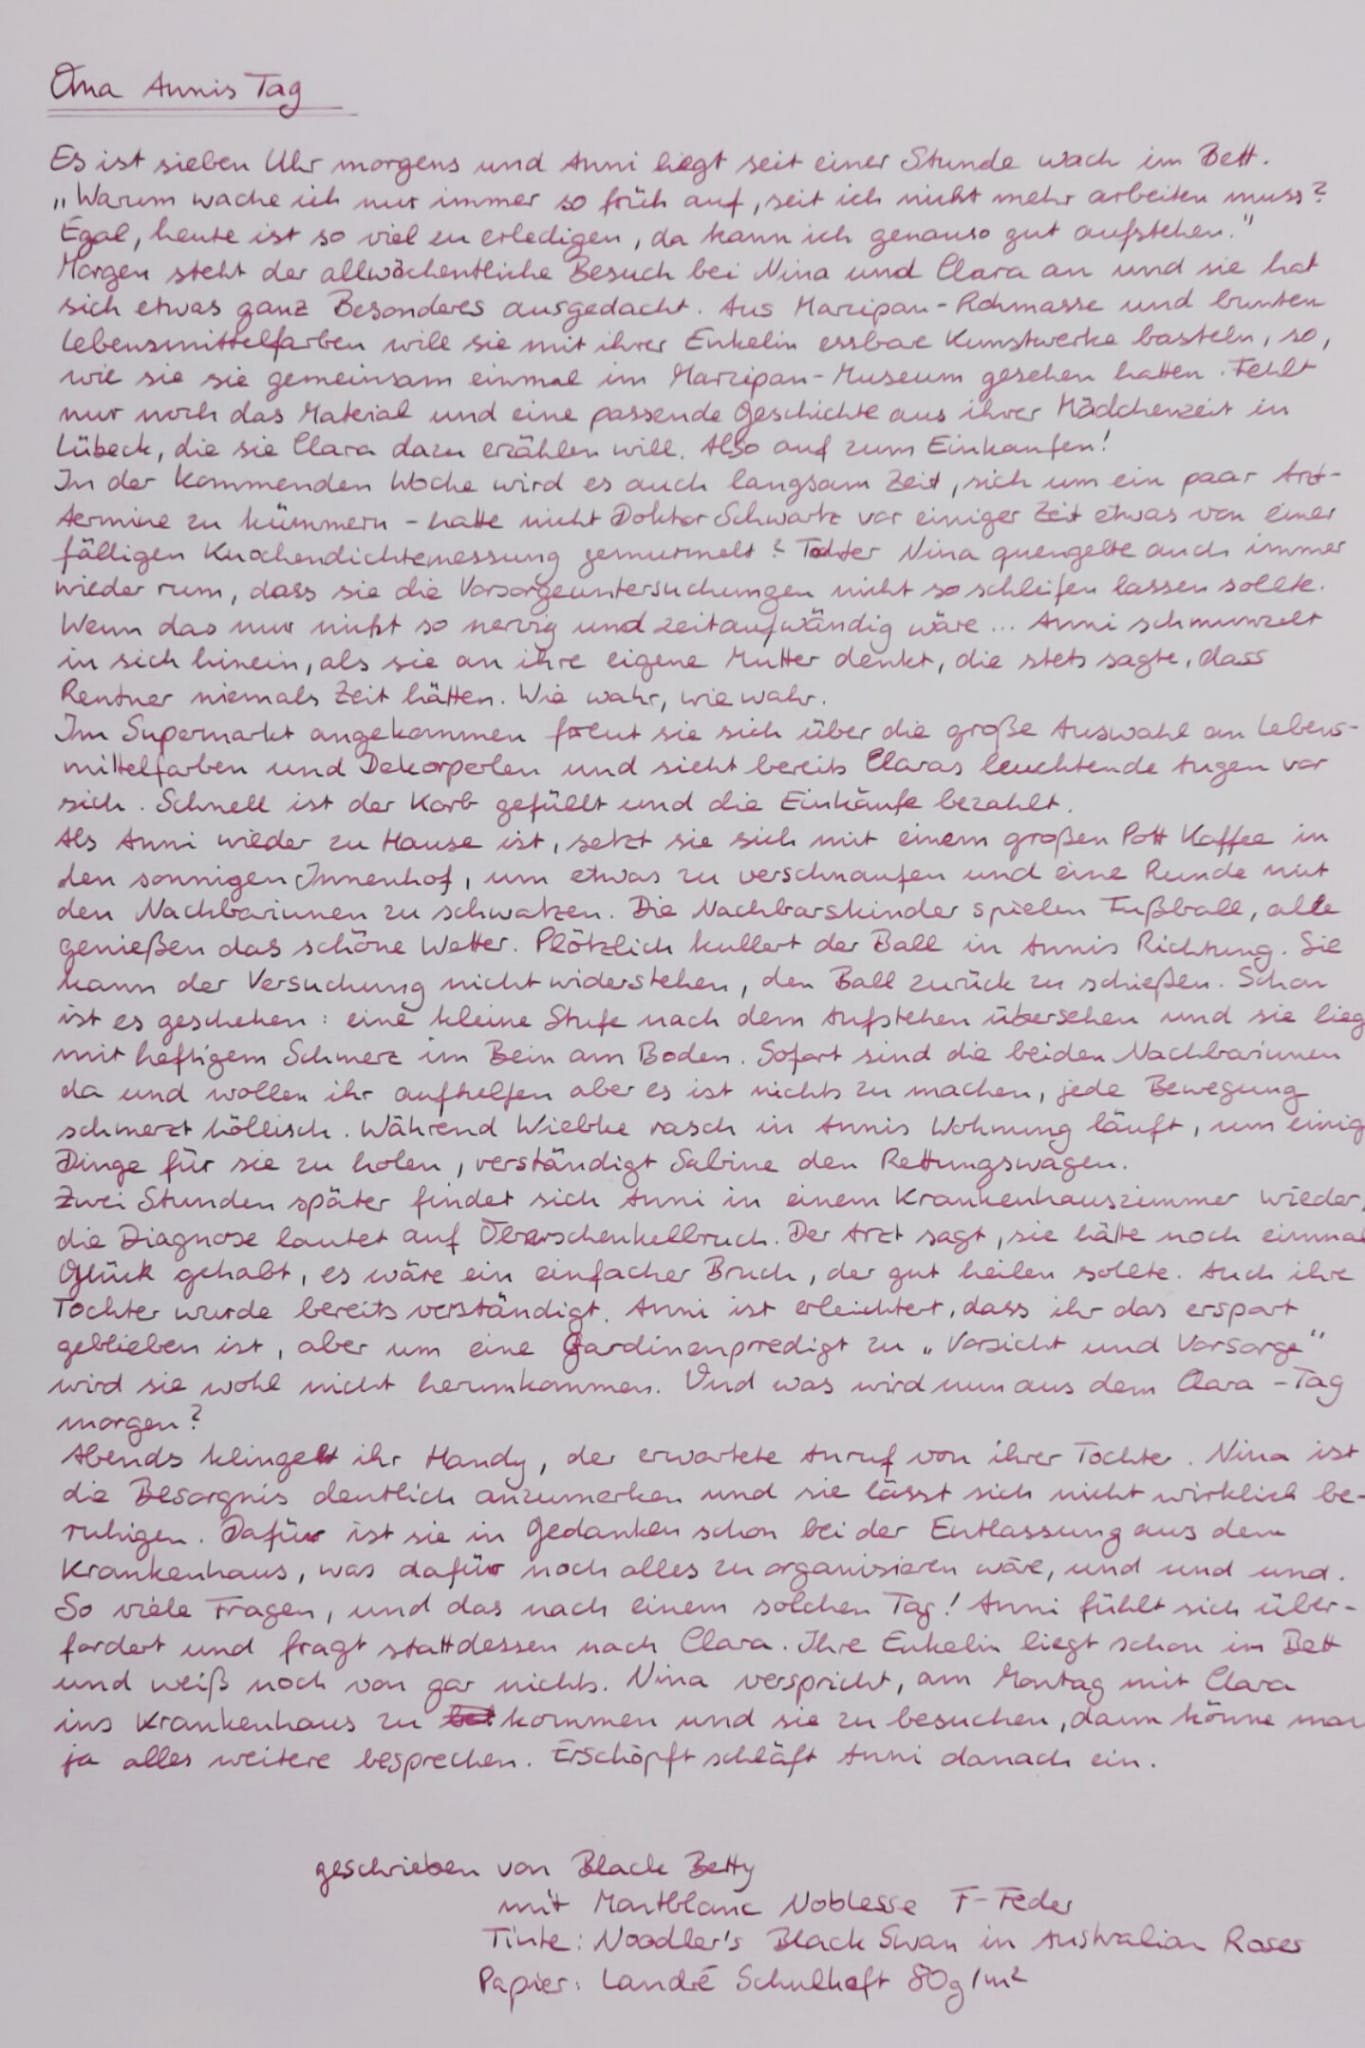 Oma Annis Tag
Es ist sieben Uhr morgens und Anni liegt seit einer Stunde wach im Bett.
„Warum wache ich nur immer so früh auf, seit ich nicht mehr arbeiten muss?
Egal, heute ist so viel zu erledigen, da kann ich genauso gut aufstehen."
Morgen steht der allwöchentliche Besuch bei Nina und Clara an und sie hat
sich etwas ganz Besonderes ausgedacht. Aus Marzipan-Rohmasse und bunten
Lebensmittelfarben will sie mit ihrer Enkelin essbare Kunstwerke basteln, so,
wie sie sie gemeinsam einmal im Marzipan-Museum gesehen hatten. Fehlt
nur noch das Material und eine passende Geschichte aus ihrer Mädchenzeit in
Lübeck, die sie Clara dazu erzählen will. Also auf zum Einkaufen!
In der kommenden Woche wird es auch langsam Zeit, sich um ein paar Arzt-
termine zu kümmern - hatte nicht Doktor Schwartz vor einiger Zeit etwas von einer
fälligen Knochendichtemessung gemurmelt? Tochter Nina quengelte auch immer
wieder rum, dass sie die Vorsorgeuntersuchungen nicht so schleifen lassen sollte.
Wenn das nur nicht so nervig und zeitaufwändig wäre ... Anni schmunzelt
in sich hinein, als sie an ihre eigene Mutter denkt, die stets sagte, dass
Rentner niemals Zeit hätten. Wie wahr, wie wahr.
Im Supermarkt angekommen freut sie sich über die große Auswahl an Lebens-
mittelfarben und Dekorperlen und sieht bereits Claras leuchtende Augen vor
sich. Schnell ist der Korb gefüllt und die Einkäufe bezahlt.
Als Anni wieder zu Hause ist, setzt sie sich mit einem großen Pott Kaffee in
den sonnigen Innenhof, um etwas zu verschnaufen und eine Runde mit
den Nachbarinnen zu schwatzen. Die Nachbarskinder spielen Fußball, alle
genießen das schöne Wetter. Plötzlich kullert der Ball in Annis Richtung. Sie
kann der Versuchung nicht widerstehen, den Ball zurück zu schießen. Schon
ist es geschehen: eine kleine Stufe nach dem Aufstehen übersehen und sie lieg
mit heftigem Schmerz im Bein am Boden. Sofort sind die beiden Nachbarinnen
da und wollen ihr aufhelfen aber es ist nichts zu machen, jede Bewegung
schmerzt höllisch. Während Wiebke rasch in Annis Wohnung läuft, um einig
Dinge für sie zu holen, verständigt Sabine den Rettungswagen.
Zwei Stunden später findet sich Anni in einem Krankenhauszimmer wieder,
die Diagnose lautet auf Oberschenkelbruch. Der Arzt sagt, sie hätte noch einmal
Glück gehabt, es wäre ein einfacher Bruch, der gut heilen sollte. Auch ihre
Tochter wurde bereits verständigt. Anni ist erleichtert, dass ihr das erspart
geblieben ist, aber um eine Gardinenpredigt zu „Vorsicht und Vorsorge"
wird sie wohl nicht herumkommen. Und was wird nun aus dem Clara-Tag
morgen?
Abends klingelt ihr Handy, der erwartete Anruf von ihrer Tochter. Nina ist
die Besorgnis deutlich anzumerken und sie lässt sich nicht wirklich be-
ruhigen. Dafür ist sie in Gedanken schon bei der Entlassung aus dem
Krankenhaus, was dafür noch alles zu organisieren wäre, und und und.
So viele Fragen, und das nach einem solchen Tag! Anni fühlt sich über-
fordert und fragt stattdessen nach Clara. Ihre Enkelin liegt schon im Bett
und weiß noch von gar nichts. Nina verspricht, am Montag mit Clara
ins Krankenhaus zu kommen und sie zu besuchen, dann könne man
ja alles weitere besprechen. Erschöpft schläft Anni danach ein.
geschrieben von Black Betty
mit Montblanc Noblesse F-Feder
Tinte: Noodler's Black Swan in Australian Roses
Papier: Landré Schulheft 80g/m²